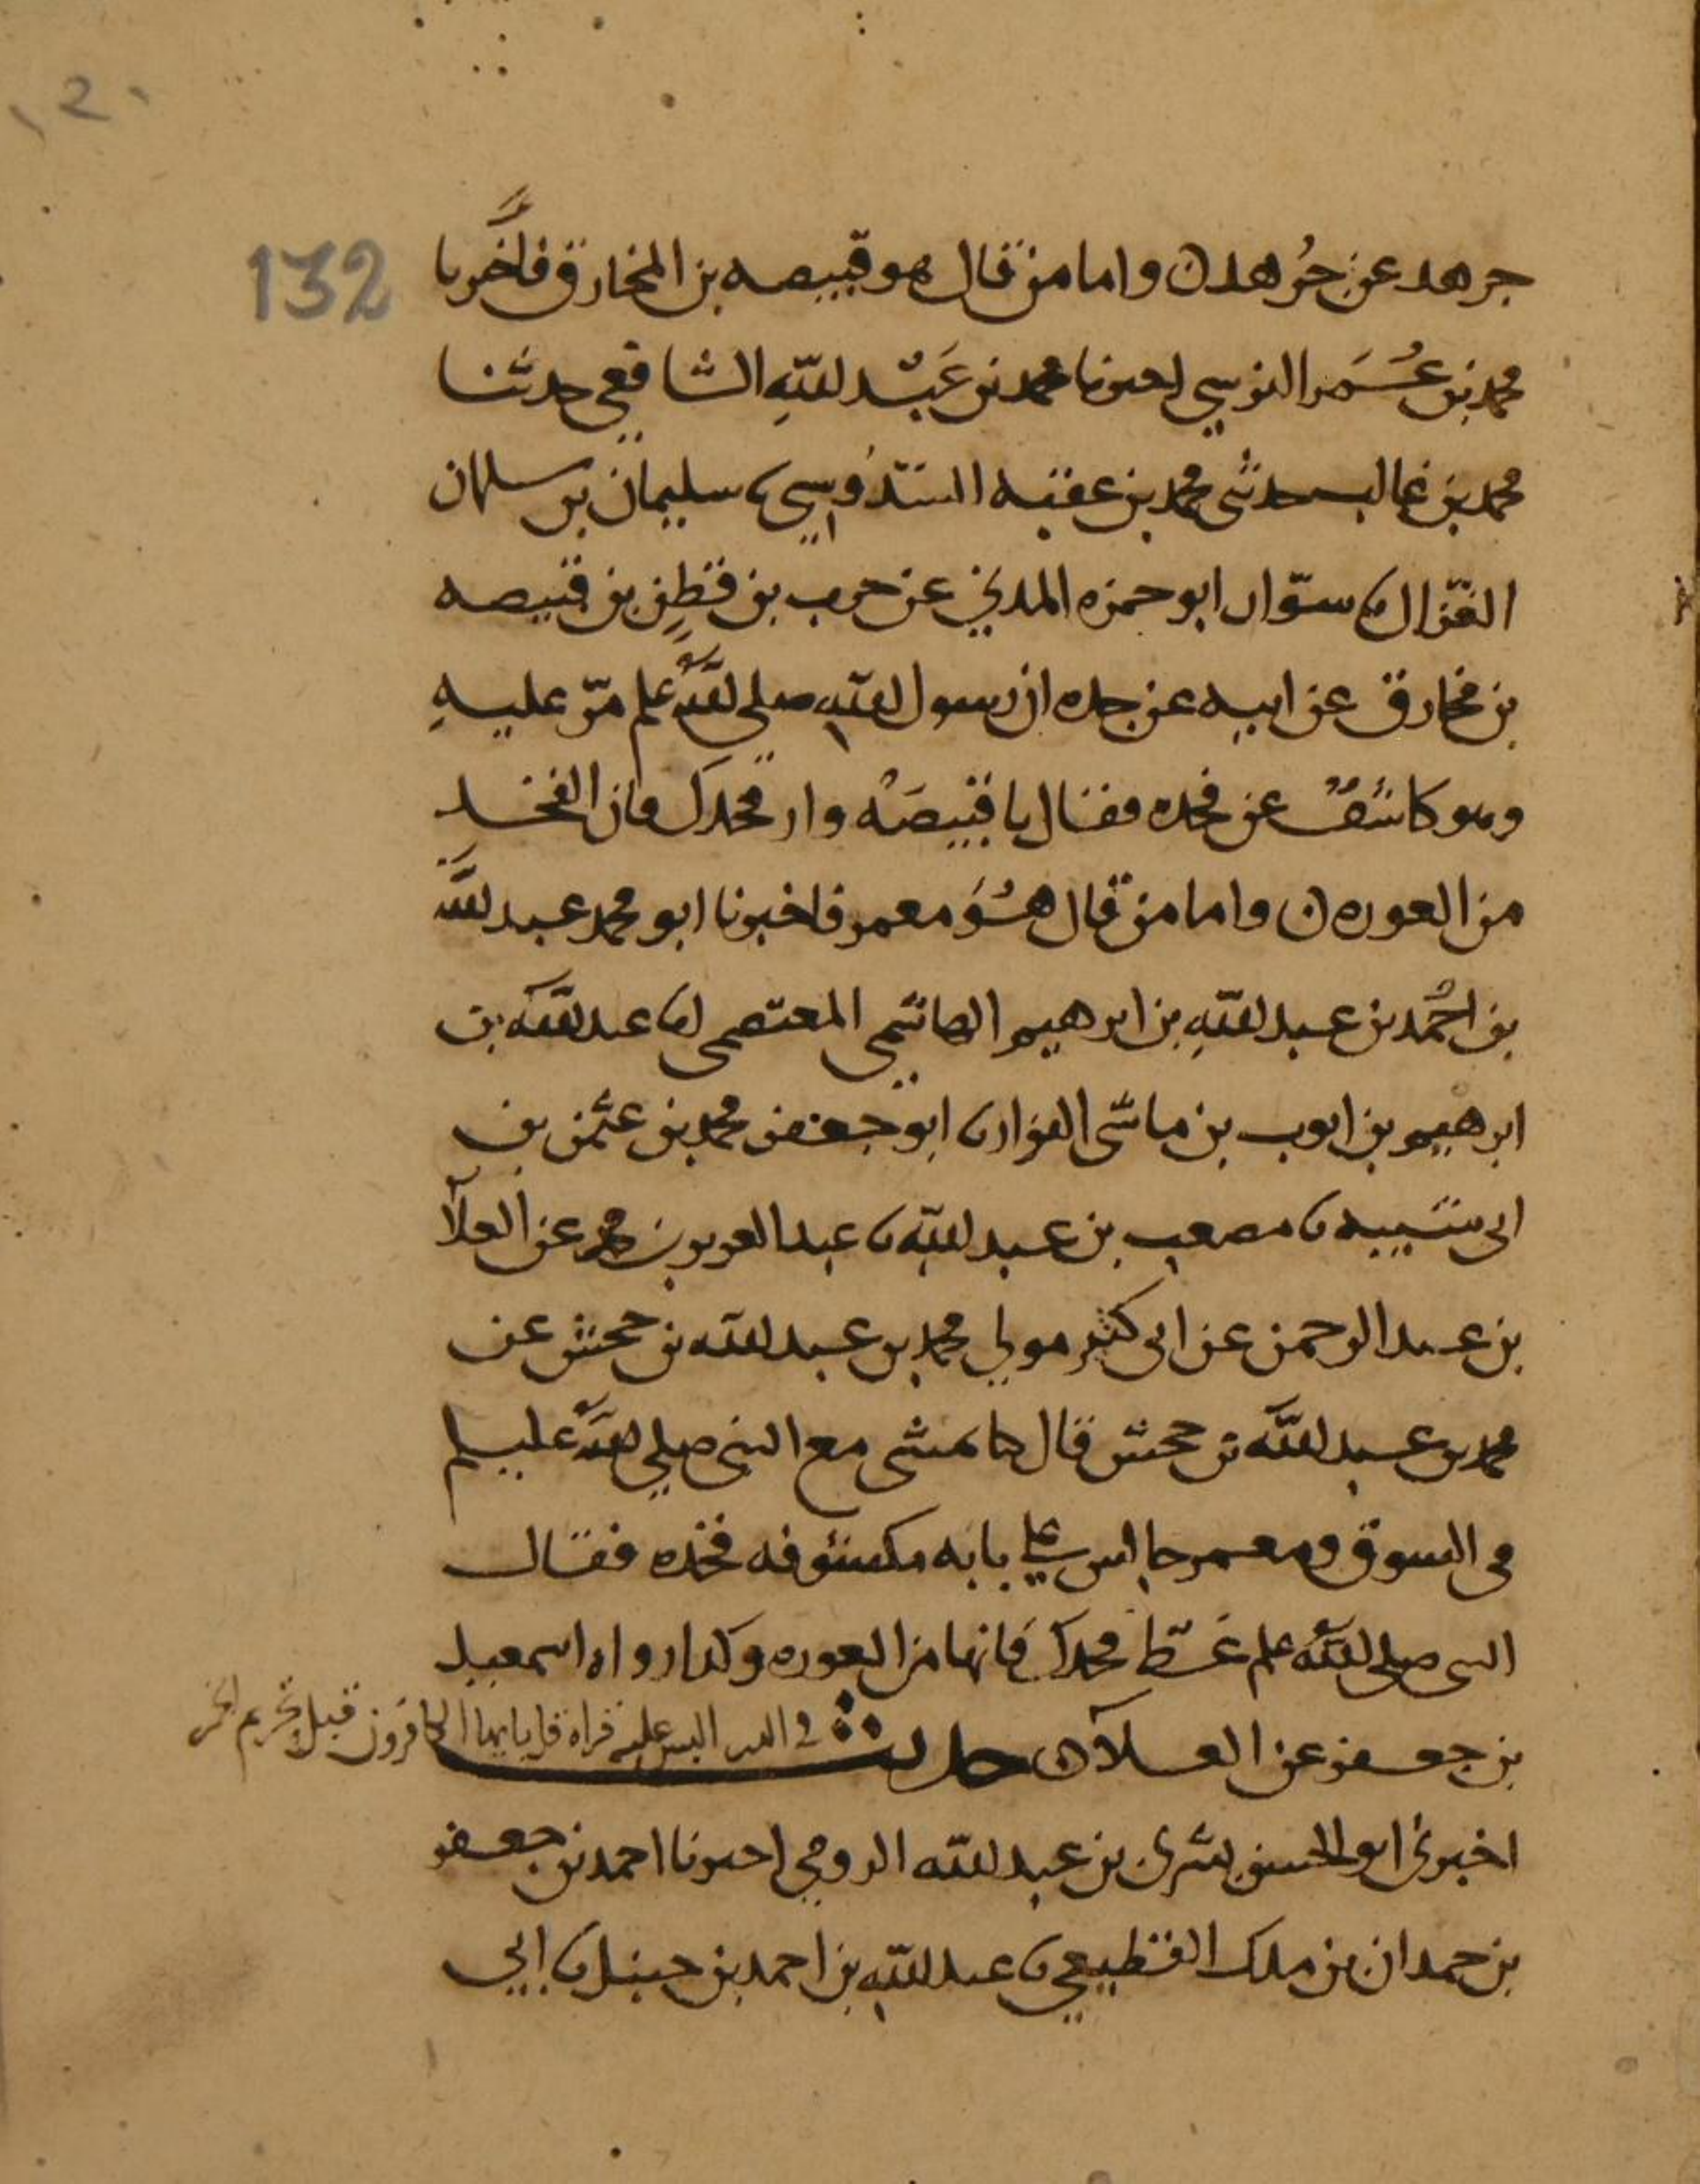 132
جرهد عن جُرهد ن واما من قال هو قبيصه بن المخارق فاخبرنا
محمد بن عُمَر النرسي اخبرنا محمد بن عَبْد اللهِ الشافعي حدثنا
محمد بن غالب حدثني محمد بن عقبه السَّدُوسي نا سليمان بن سلمان
القزال نا سوّار ابو حمزه المدني عن حرب بن قطنٍ بن قبيصه
بن مخارق عن ابيه عن جده ان رسول الله صلى الله علم مرّ عليهِ
وهو كاشفٌ عن فخده فقال يا قبيصَهُ وار فخدك فان الفخد
من العوره ن واما من قال هُوَ معمر فاخبرنا ابو محمد عبد الله
بن احْمد بن عبد اللهِ بن ابرهيم الهاشمي المعتصمي انا عبد الله بن
ابرهيم بن ايوب بن ماسى البزاز نا ابو جعفر محمد بن عثمن بن
ابى شيبه نا مصعب بن عبد الله نا عبد العزيز بن محمد عن العلآ
بن عبد الرحمن عن ابى كثير مولى محمد بن عبد الله بن جحش عن
محمد بن عبد الله بن جحش قال كنا نمشى مع النبى صلى الله عليسلم
فى السوق ومعمر جالس على بابه مكشوفه فخده فقال
النبى صلى الله علم غَطّ فخدك فانها من العوره وكذا رواه اسمعيل
بن جعفر عن العلآ ن حديث
اخبرنى ابو الحسن بشرى بن عبد الله الرومي اخبرنا احمد بن جعفر
بن حمدان بن ملك القطيعي نا عبد اللهِ بن احمد بن حنبل نا ابي